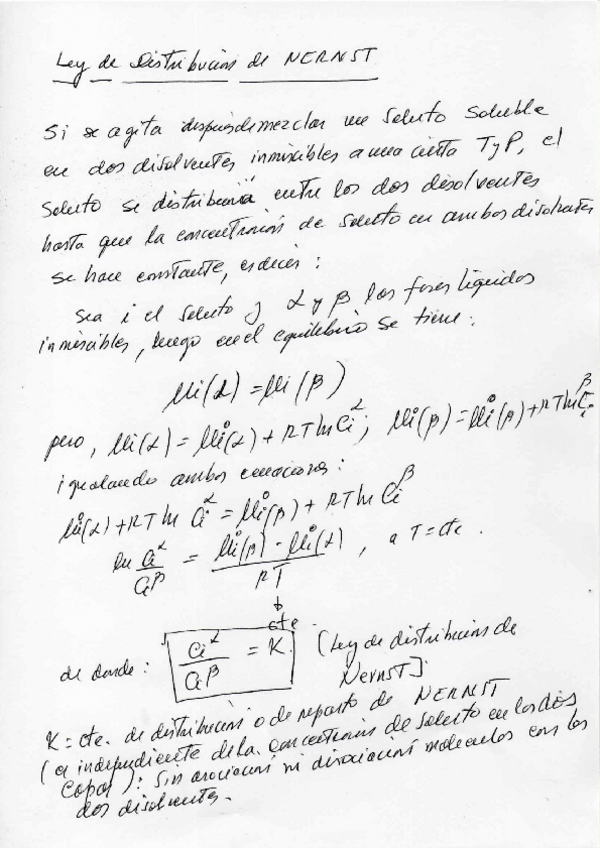 Ley de Distribución de NERNST
Si se agita después de mezclar un soluto soluble
en dos disolventes inmiscibles a una cierta T y P, el
soluto se distribuirá entre los dos disolventes
hasta que la concentración de soluto en ambos disolventes
se hace constante, es decir:
Sea i el soluto y α y β las fases líquidas
inmiscibles, luego en el equilibrio se tiene:
μi(α) = μi(β)
pero, μi(α) = μi°(α) + RT ln Ci^α ; μi(β) = μi°(β) + RT ln Ci^β
igualando ambas ecuaciones:
μi°(α) + RT ln Ci^α = μi°(β) + RT ln Ci^β
ln Ci^α / Ci^β = (μi°(β) - μi°(α)) / RT , a T = cte.
↓
cte
de donde: Ci^α / Ci^β = K. (Ley de distribución de
Nernst)
K = cte. de distribución o de reparto de NERNST
(es independiente de la concentración de soluto en las dos
capas): Sin asociación ni disociación molecular con los
dos disolventes.